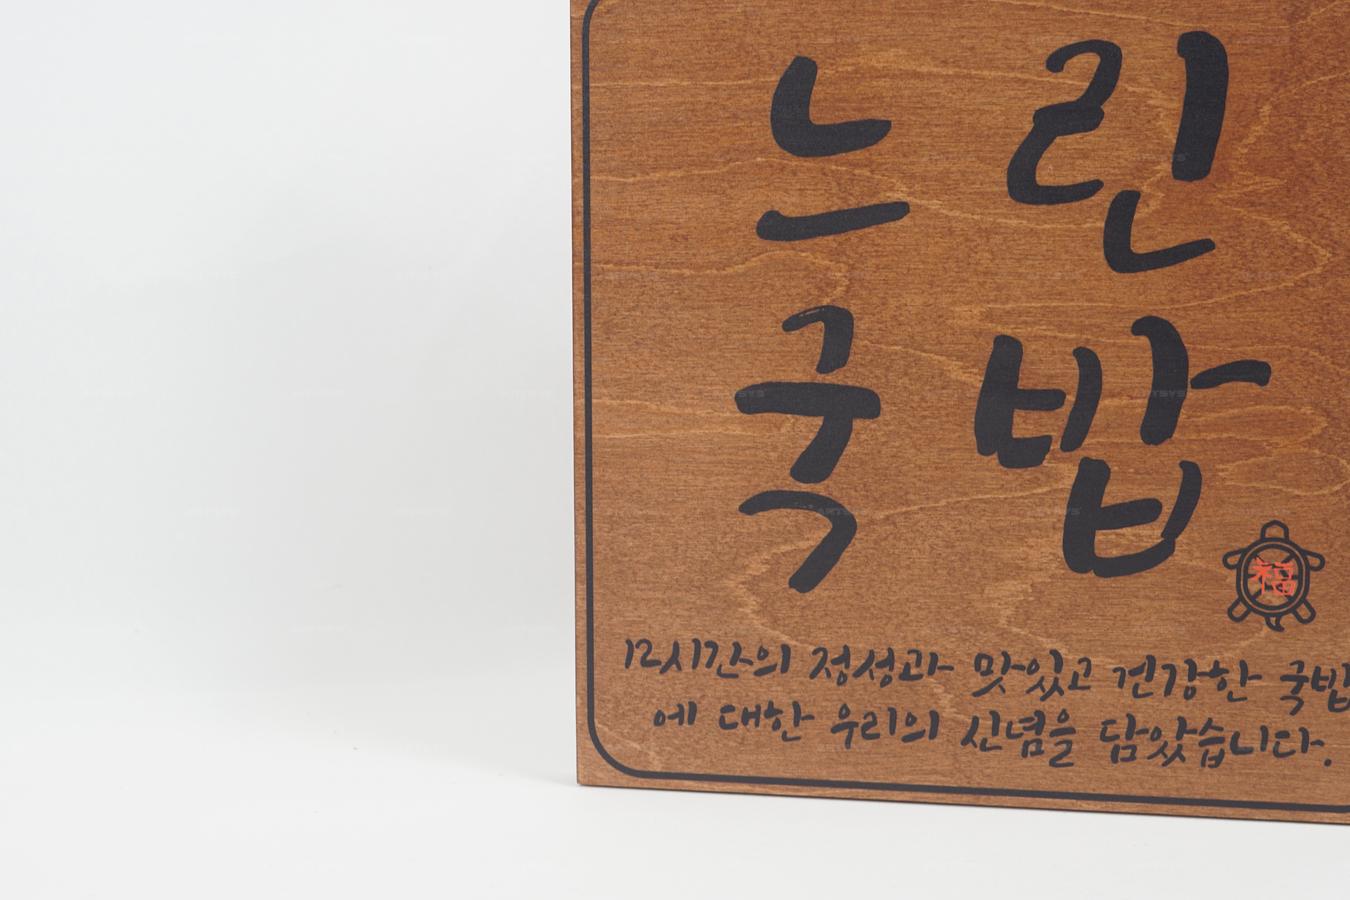 느린
국밥
福
12시간의 정성과 맛있고 건강한 국밥
에 대한 우리의 신념을 담았습니다.